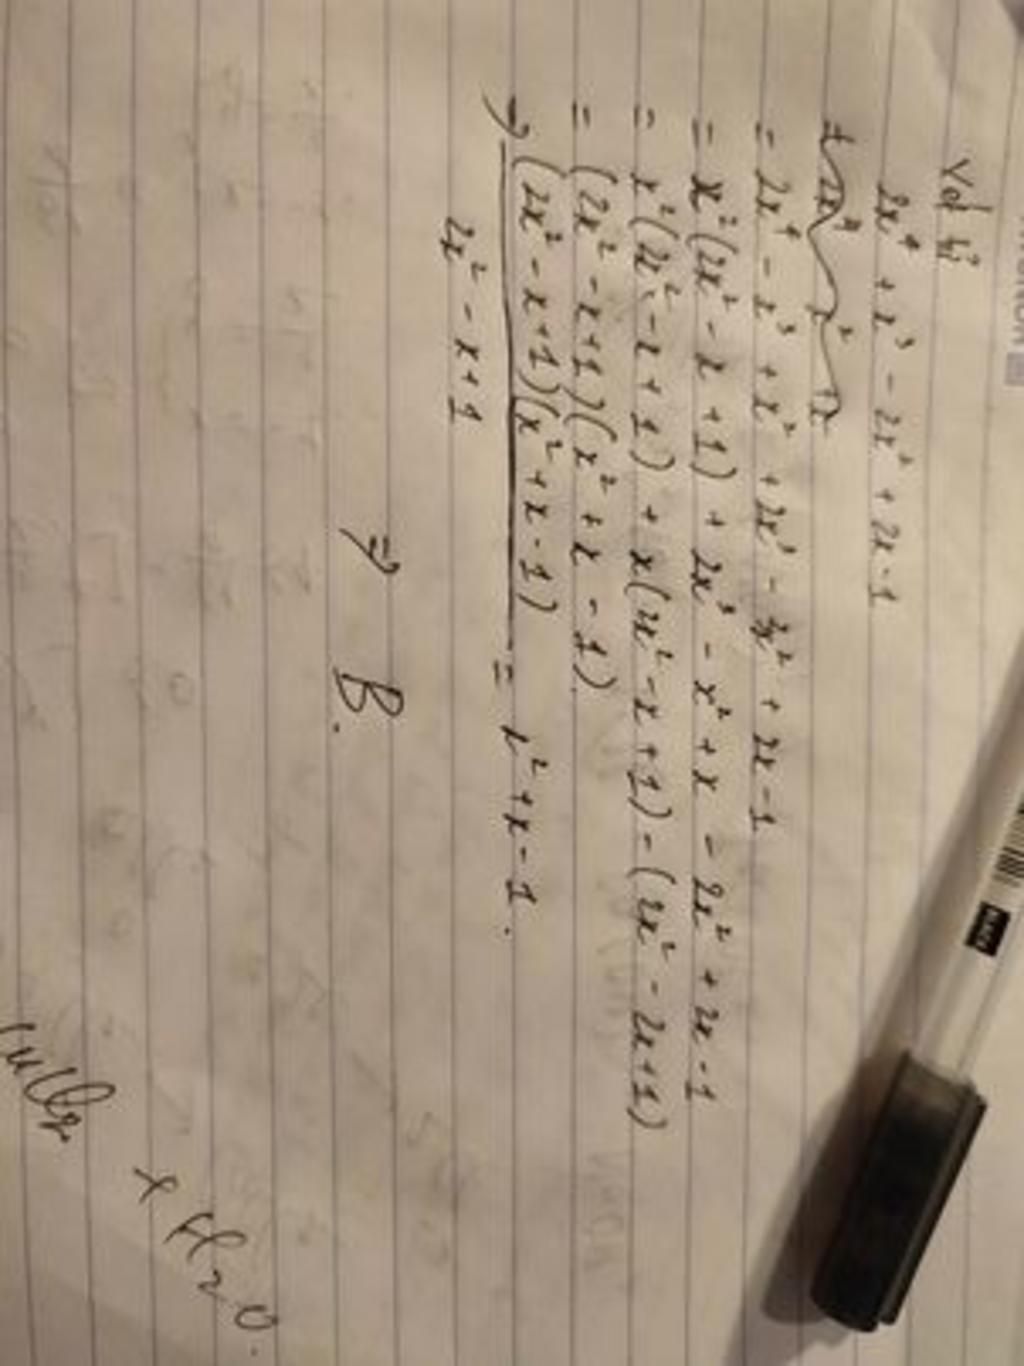 2x⁴ + x³ - 2x² + 2x - 1
= 2x⁴ - x³ + x² + 2x³ - 3x² + 2x - 1
= x²(2x² - x + 1) + 2x³ - x² + x - 2x² + 2x - 1
= x²(2x² - x + 1) + x(2x² - x + 1) - (2x² - 2x + 1)
= (2x² - x + 1)(x² + x - 1)
→ (2x² - x + 1)(x² + x - 1) = x² + x - 1.
2x² - x + 1
⇒ B.
x H₂O.